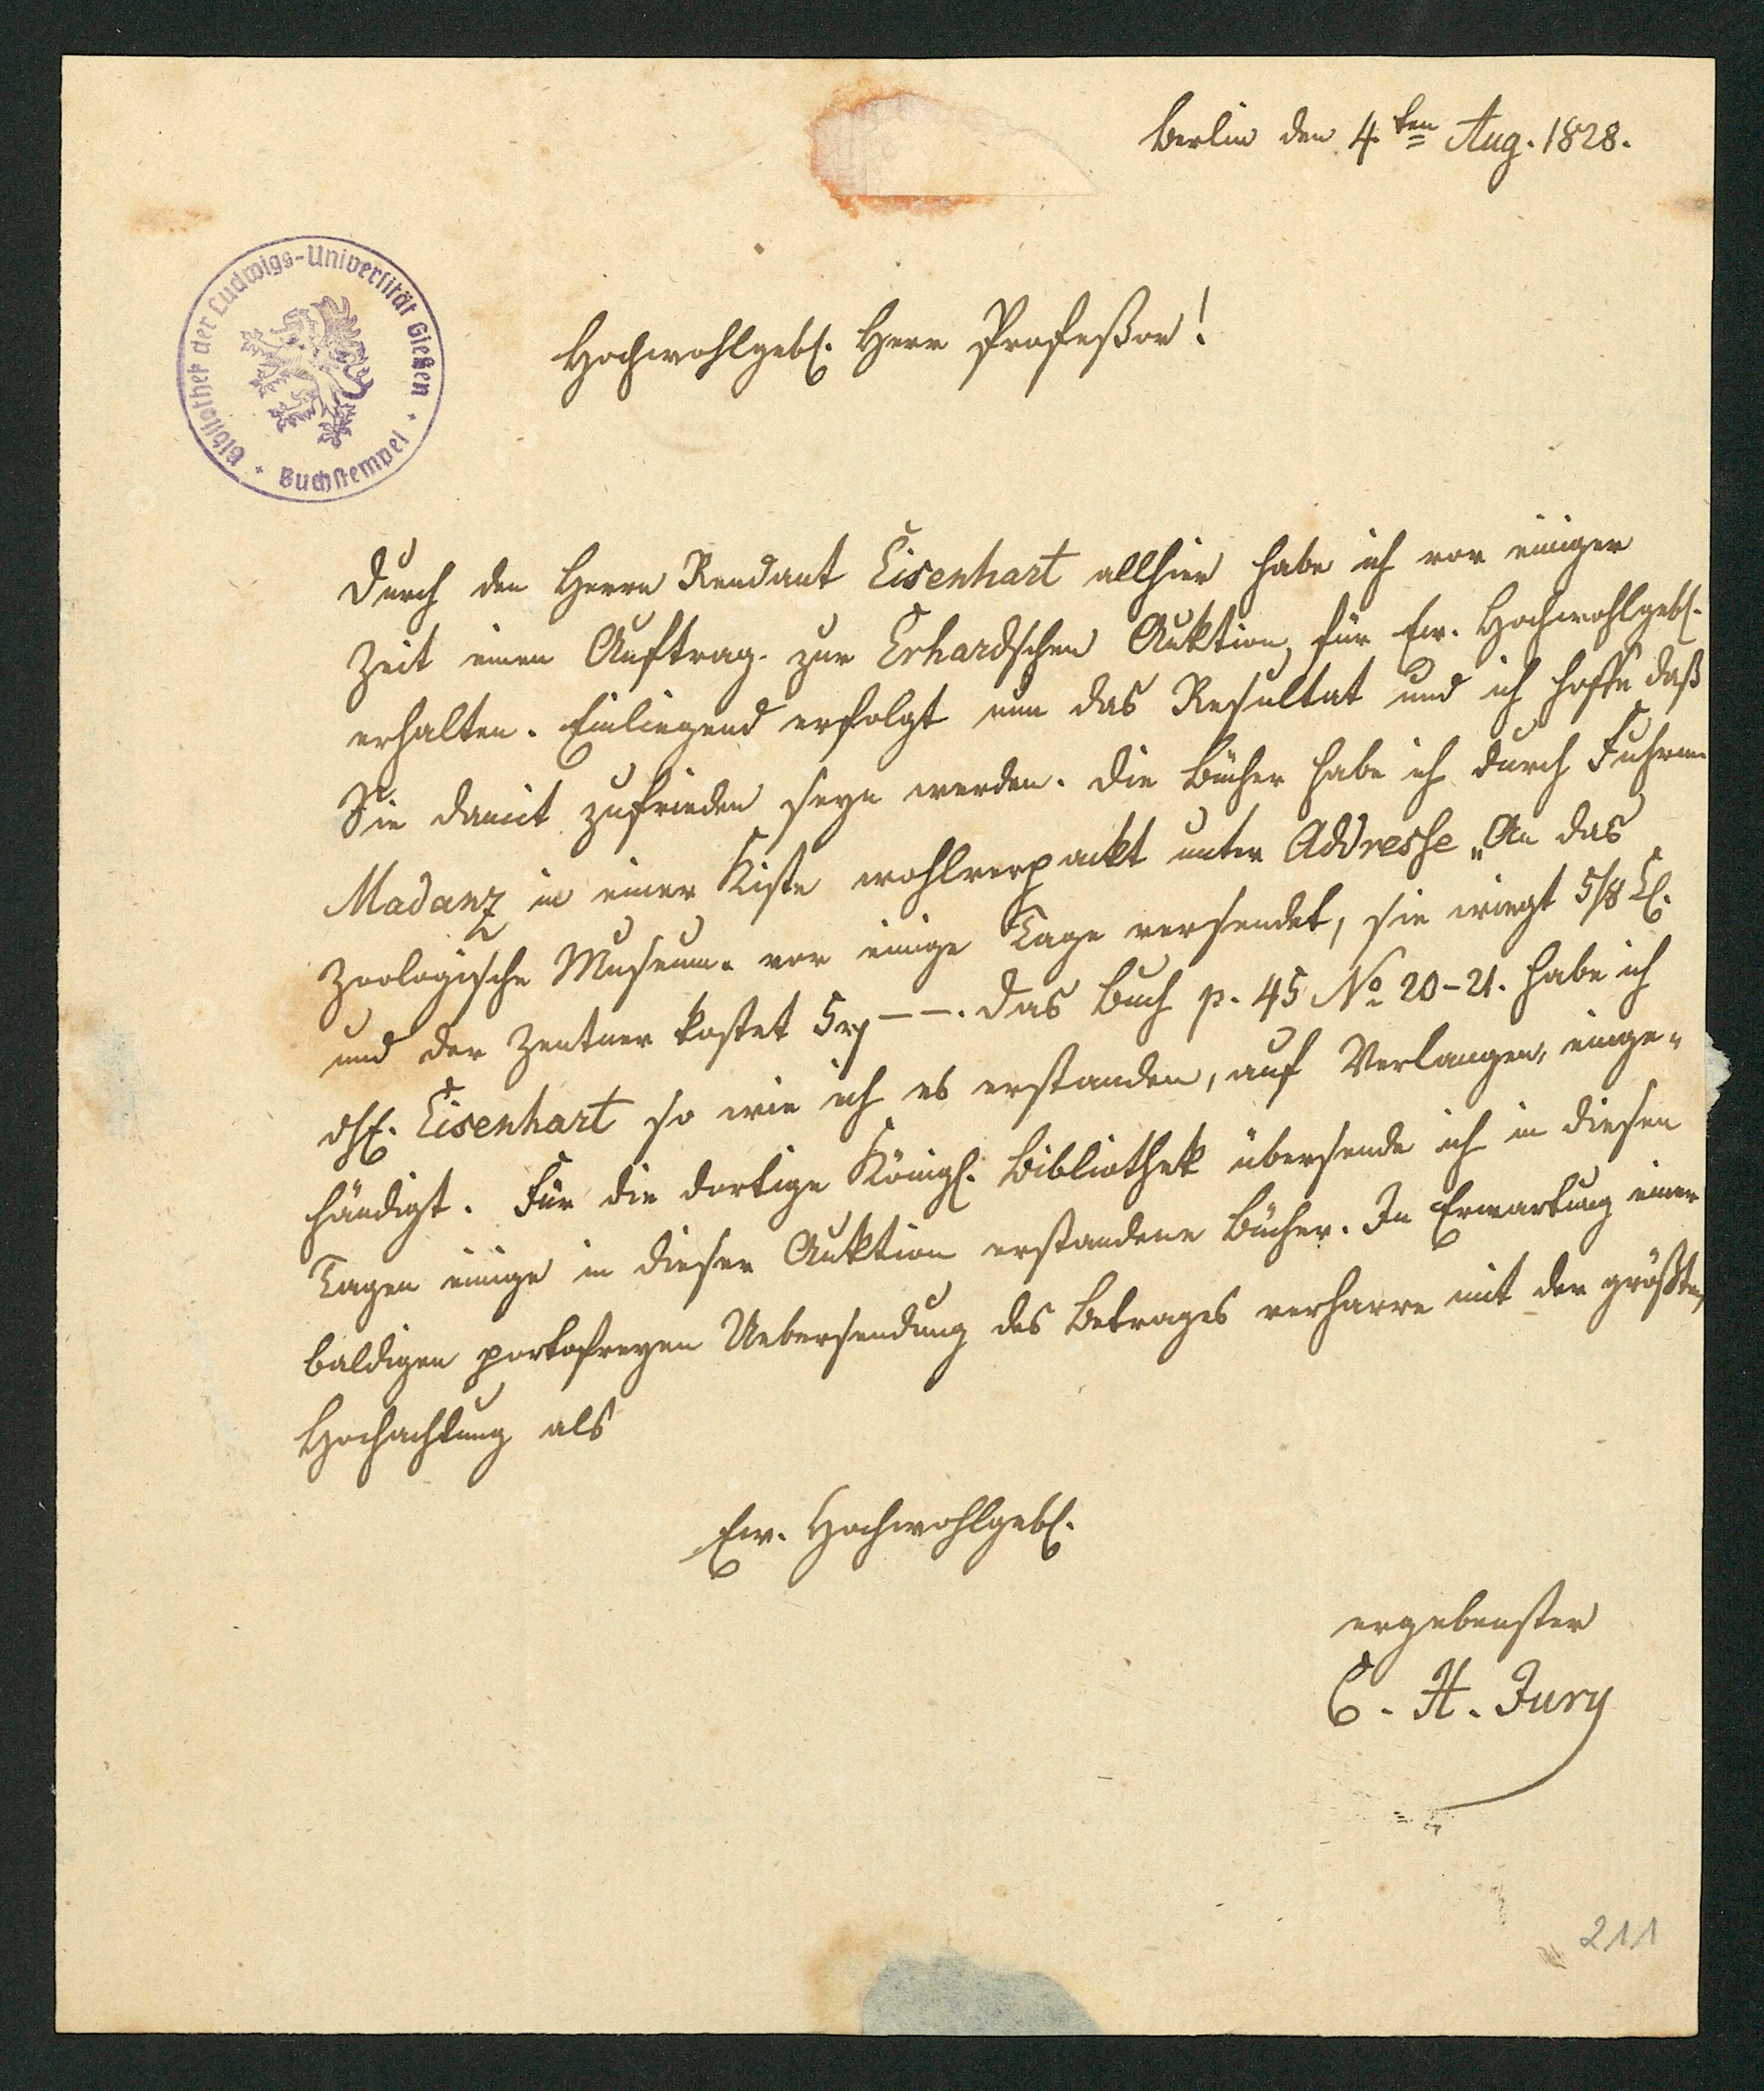 Berlin den 4ten Aug. 1828.
Bibliothek der Ludwigs-Universität Gießen
Buchstempel
Hochwohlgeb. Herr Profeßor!
Durch den Herrn Rendant Eisenhart allhier habe ich vor einiger
Zeit einen Auftrag zur Erhardschen Auktion, für Ew. Hochwohlgeb.
erhalten. Einliegend erfolgt nun das Resultat und ich hoffe daß
Sie damit zufrieden seyn werden. Die Bücher habe ich durch Fuhrm
Madanz in einer Kiste wohlverpackt unter Addresse „An das
Zoologische Museum" vor einige Tage versendet, sie wiegt 5/8
und der Zentner kostet 5 — —. Das Buch p. 45 No 20-21. habe ich
H. Eisenhart so wie ich es erstanden, auf Verlangen, einge-
händigt. Für die dortige Königl. Bibliothek übersende ich in diesen
Tagen einige in dieser Auktion erstandene Bücher. In Erwartung einer
baldigen portofreyen Uebersendung des Betrages verharre mit der größten
Hochachtung als
Ew. Hochwohlgeb.
ergebenster
C. H. Jury
211